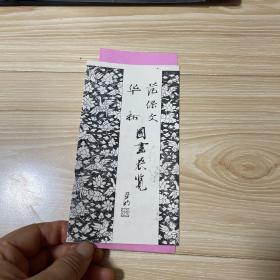 范保文
华拓
图画展览